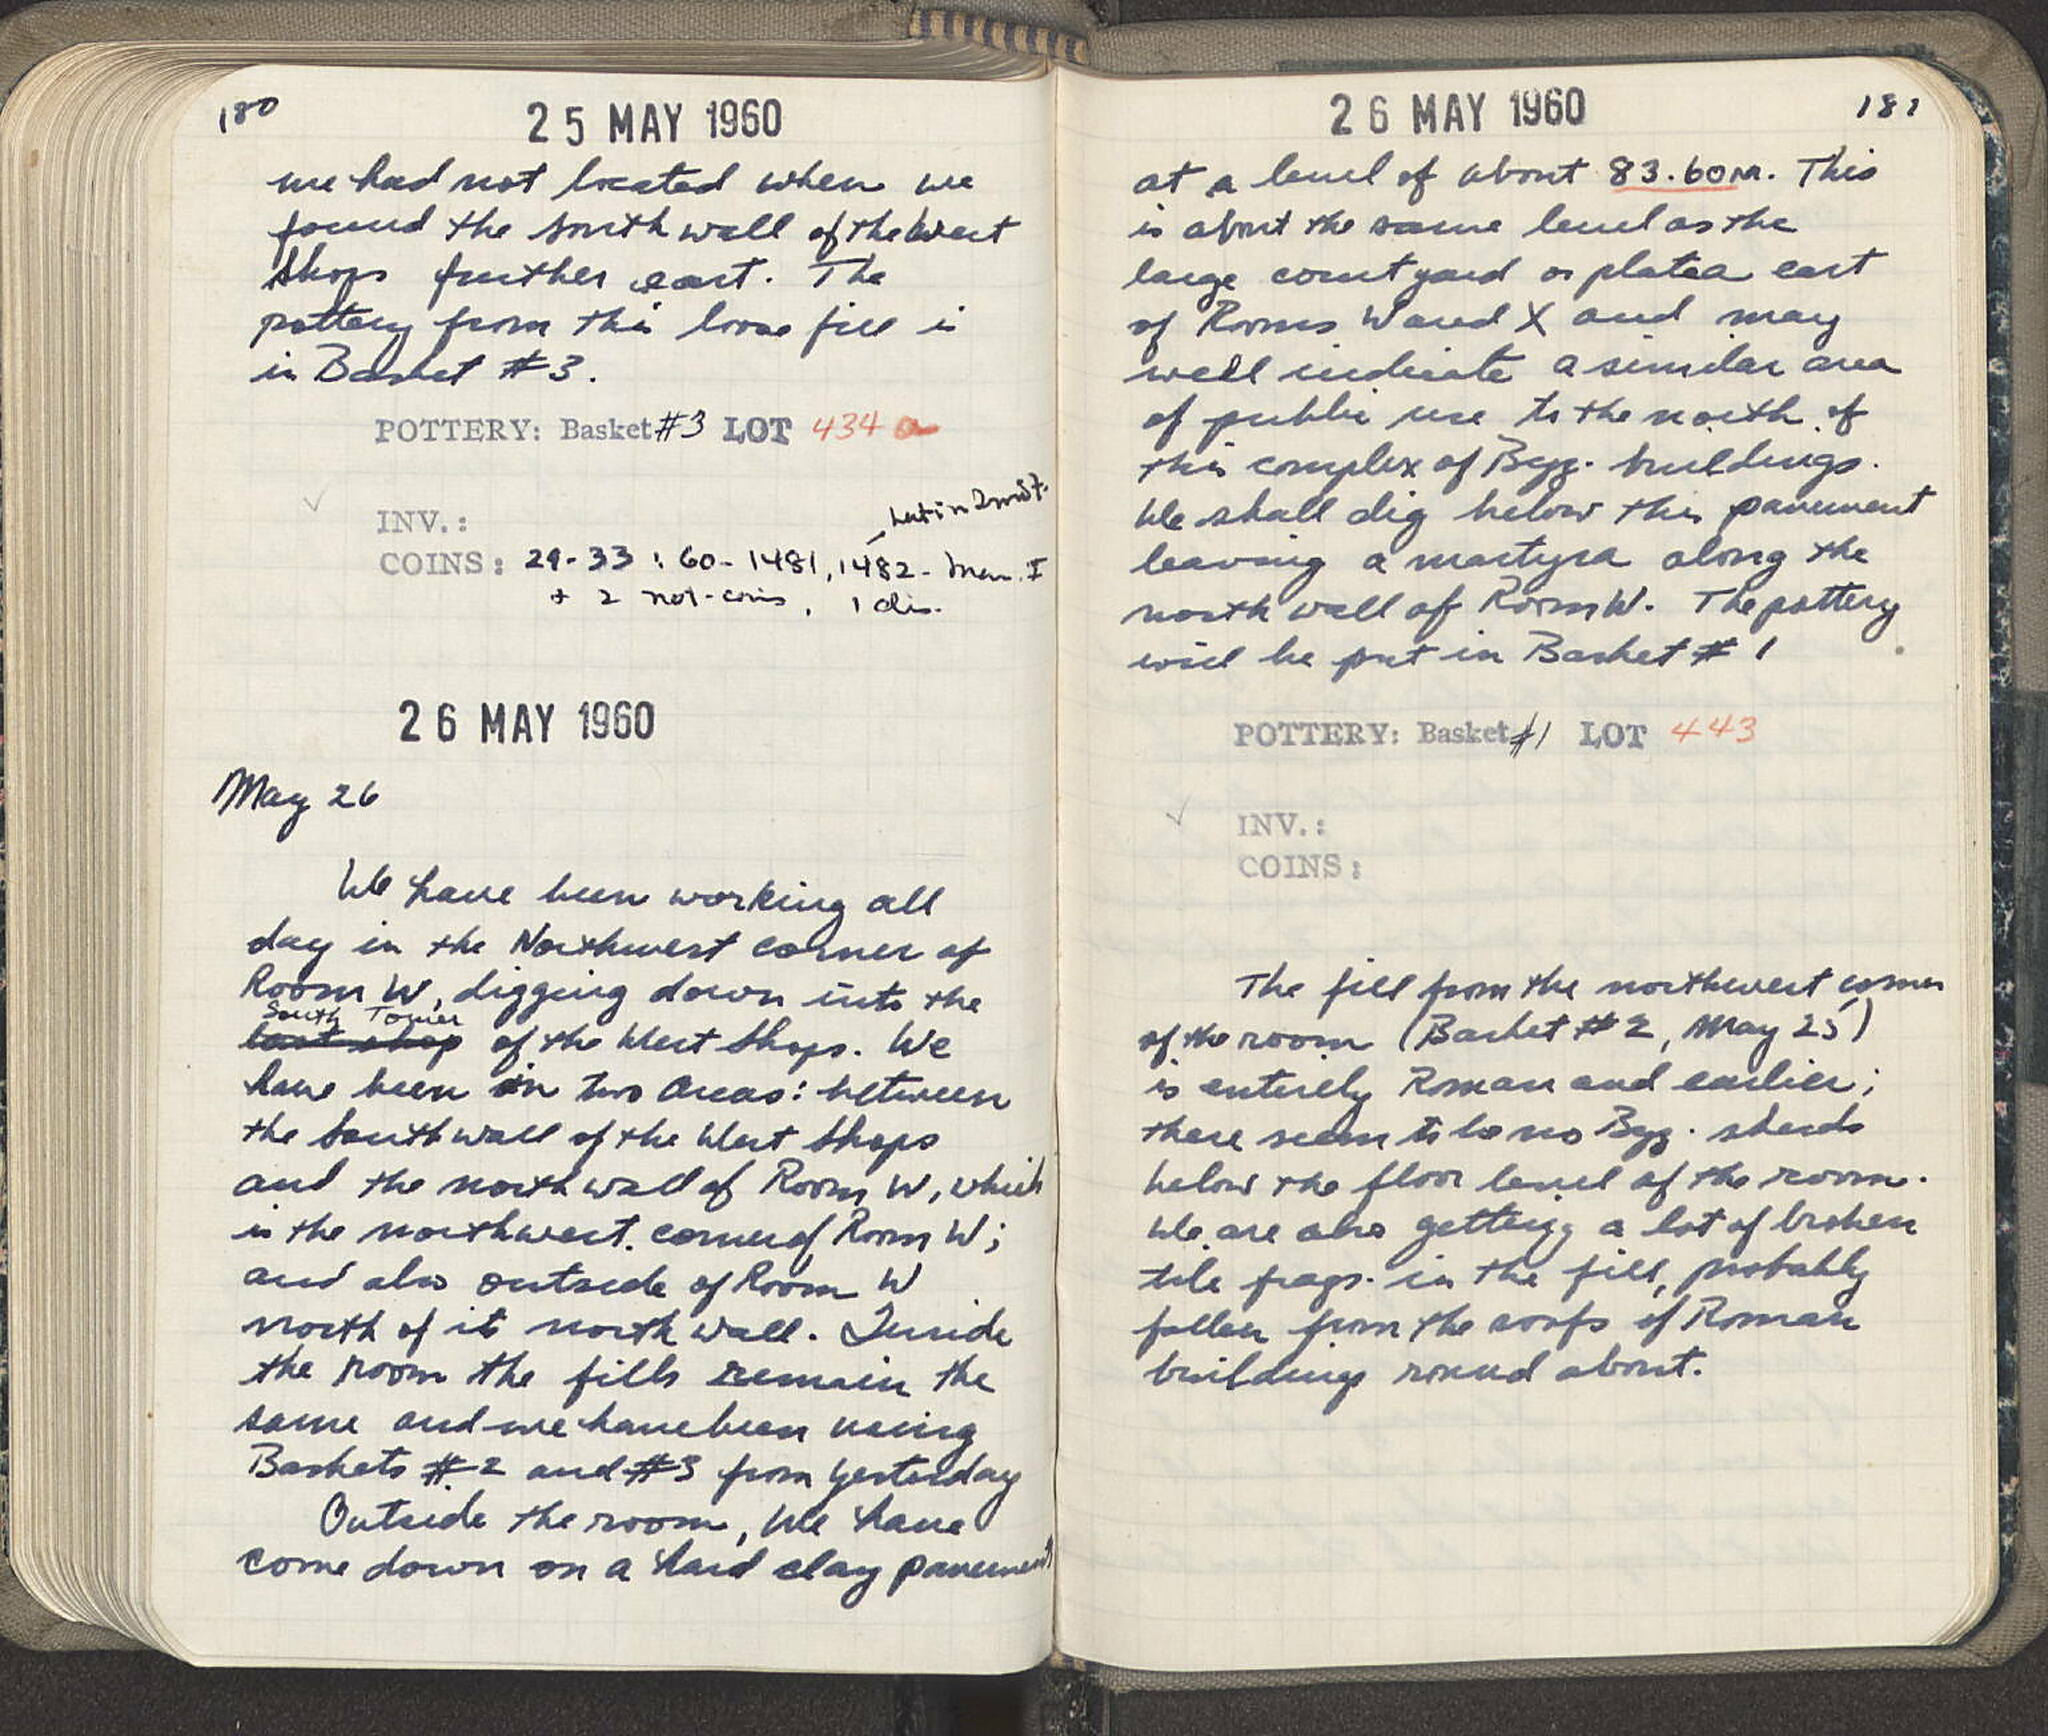 180
25 MAY 1960
we had not located when we
found the south wall of the West
Shops further east. The
pottery from this loose fill is
in Basket #3.
POTTERY: Basket #3 LOT 434
INV.:
Latin Imit.
COINS: 29-33 : 60-1481, 1482- Man. I
+ 2 not-coins, 1 dis.
26 MAY 1960
May 26
We have been working all
day in the Northwest corner of
Room W, digging down into the
South Tower
last shop of the West Shops. We
have been in two areas: between
the South wall of the West Shops
and the north wall of Room W, which
is the northwest corner of Room W;
and also outside of Room W
north of its north wall. Inside
the room the fills remain the
same and we have been using
Baskets #2 and #3 from yesterday
Outside the room, we have
come down on a hard clay pavement
26 MAY 1960
181
at a level of about 83.60m. This
is about the same level as the
large courtyard or platea east
of Rooms W and X and may
well indicate a similar area
of public use to the north of
this complex of Byz. buildings.
We shall dig below this pavement
leaving a martyra along the
north wall of Room W. The pottery
will be put in Basket #1
POTTERY: Basket #1 LOT 443
INV.:
COINS:
The fill from the northwest corner
of the room (Basket #2, May 25)
is entirely Roman and earlier;
there seem to be no Byz. sherds
below the floor level of the room.
We are also getting a lot of broken
tile frags. in the fill, probably
fallen from the roofs of Roman
buildings round about.